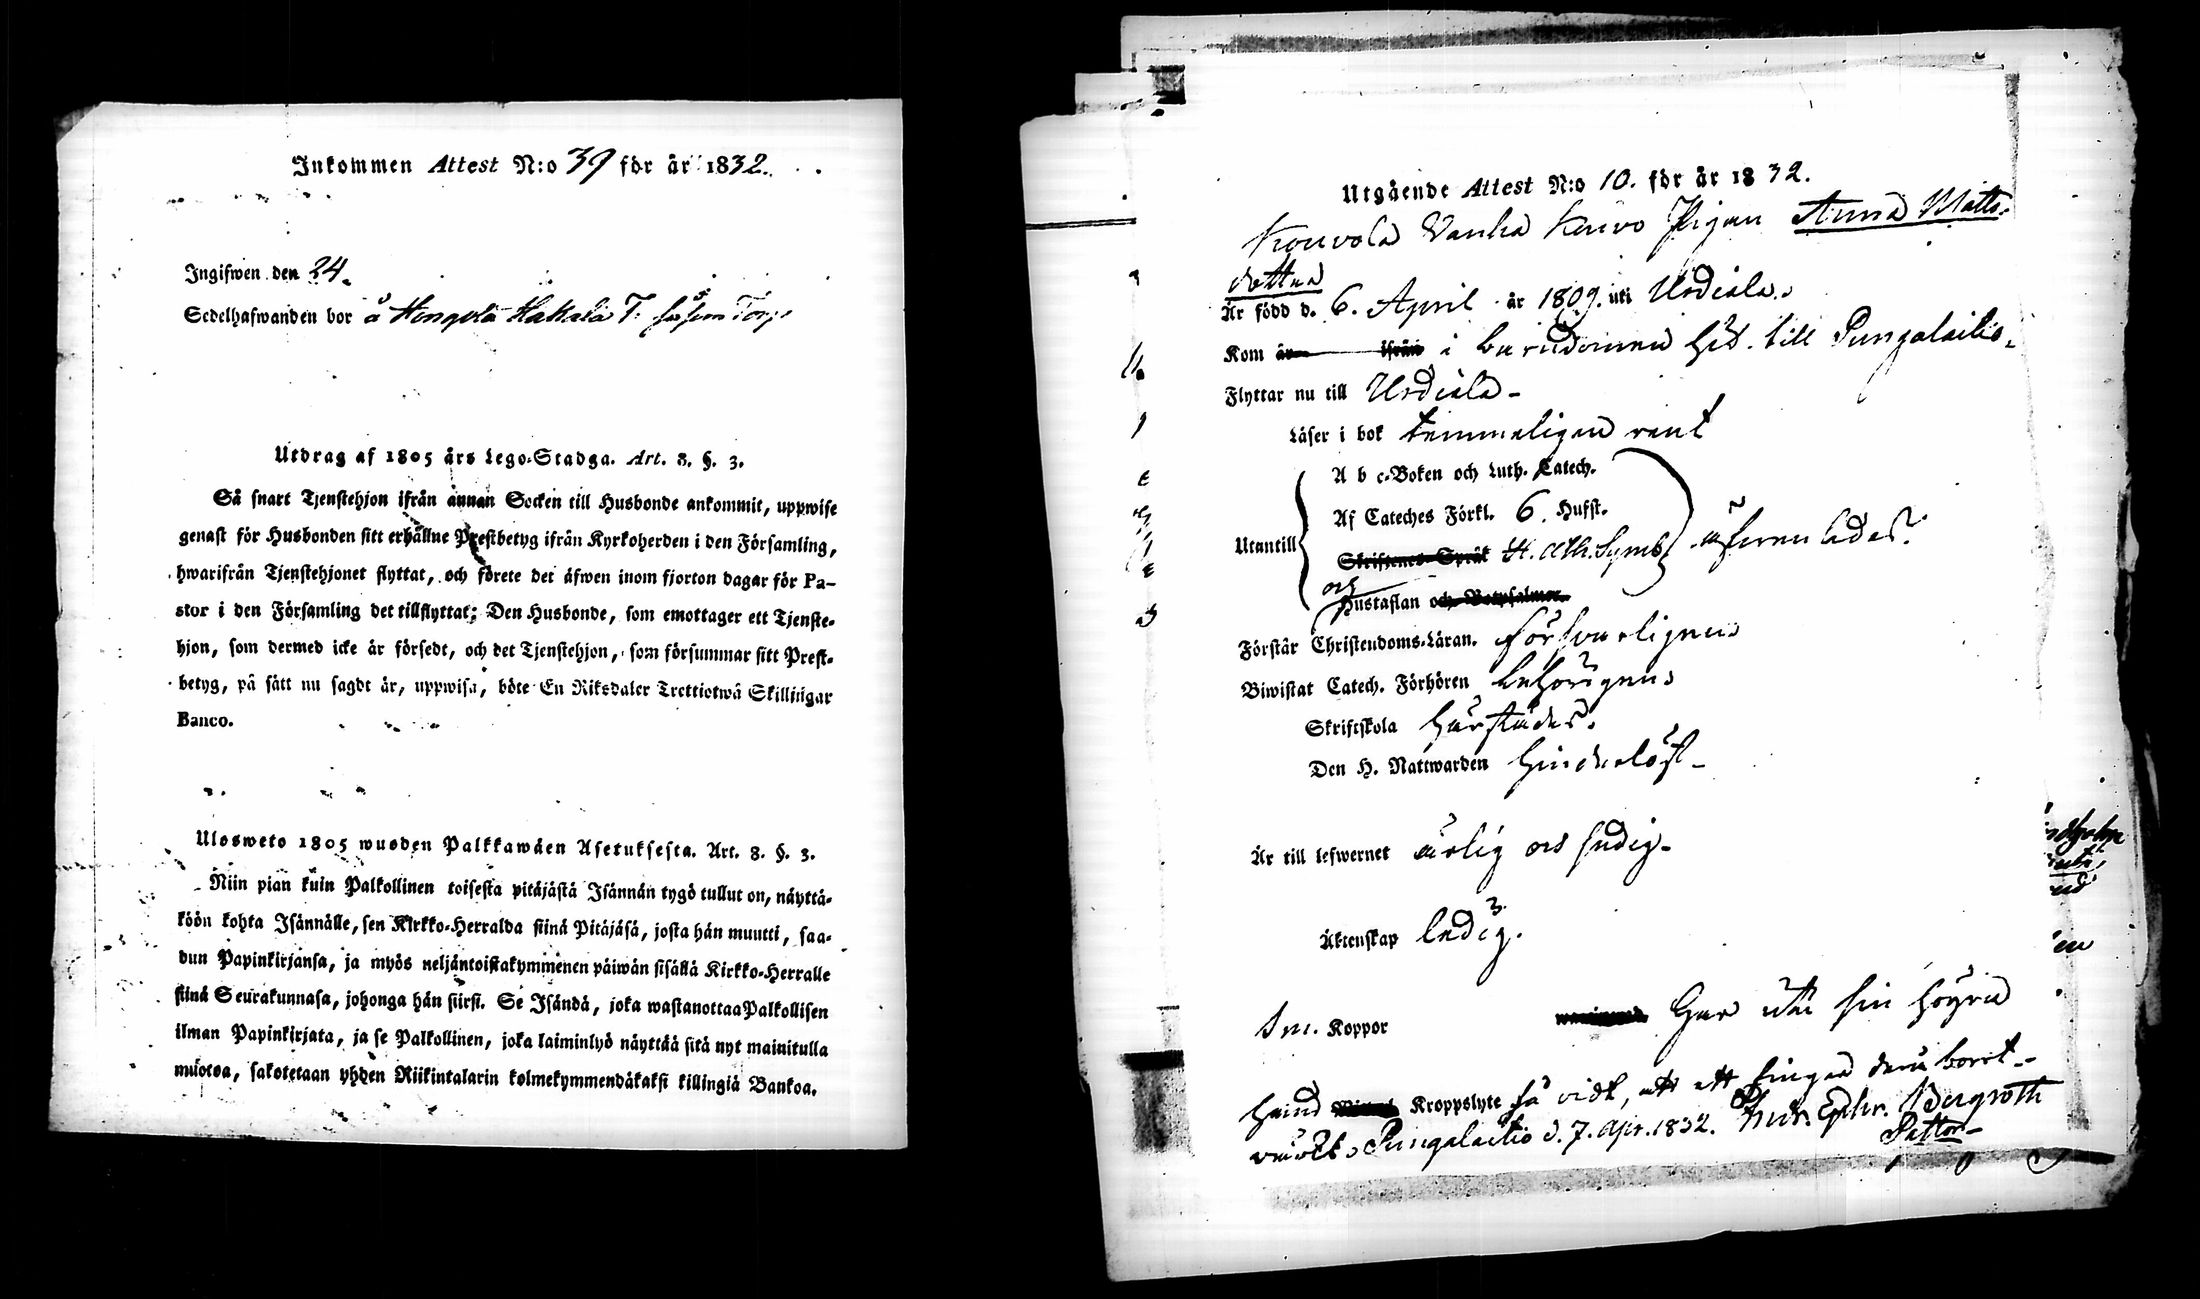 Inkommen Attest N:o 39 för år 1832.
Ingifwen den 24.
Sedelhafwanden bor å Hongola Hakala T.
Utdrag af 1805 års Lego-Stadga. Art. 8. §. 3.
Så snart Tjenstehjon ifrån annan Socken till Husbonde ankommit, uppwise
genast för Husbonden sitt erhållne Prestbetyg ifrån Kyrkoherden i den Församling,
hwarifrån Tjenstehjonet flyttat, och förete det äfwen inom fjorton dagar för Pa-
stor i den Församling det tillflyttat; Den Husbonde, som emottager ett Tjenste-
hjon, som dermed icke är försedt, och det Tjenstehjon, som försummar sitt Prest-
betyg, på sätt nu sagdt är, uppwisa, böte En Riksdaler Trettiotwå Skillingar
Banco.
Ulosweto 1805 wuoden Palkkawäen Asetuksesta. Art. 8. §. 3.
Niin pian kuin Palkollinen toisesta pitäjästä Isännän tygö tullut on, näyttä-
köön kohta Isännälle, sen Kirkko-Herralda siinä Pitäjäsä, josta hän muutti, saa-
dun Papinkirjansa, ja myös neljäntoistakymmenen päiwän sisällä Kirkko-Herralle
siinä Seurakunnasa, johonga hän siirsi. Se Isändä, joka wastanottaa Palkollisen
ilman Papinkirjata, ja se Palkollinen, joka laiminlyö näyttää sitä nyt mainitulla
muotoa, sakotetaan yhden Riikintalarin kolmekymmendäkaksi killingiä Bankoa.
Utgående Attest N:o 10. för år 1832.
Kouvola Vanha Kauvo Pigan Anna Matts-
dotter
Är född d. 6. April år 1809. uti Urdiala.
Kom år ifrån i barndomen hit till Pungalaitio.
Flyttar nu till Urdiala
Läser i bok temmeligen rent
A b c-Boken och Luth. Catech.
Af Cateches Förkl. 6. Hufst.
Utantill
Skriftenes Språk H. Ath. Symb. äfvenledes.
och
Hustaflan och Botpsalmer.
Förstår Christendoms-Läran. försvarligen
Biwistat Catech. Förhören behörigen
Skriftskola härstädes.
Den H. Nattwarden hinderlöst
Är till lefwernet ärlig och sedig
Äktenskap ledig.
Koppor har uti sin högra
hand Kroppslyte så vidt, att ett finger deri bort-
värkt. Pungalaitio d. 7. Apr. 1832. And. Ephr. Bergroth
Pastor